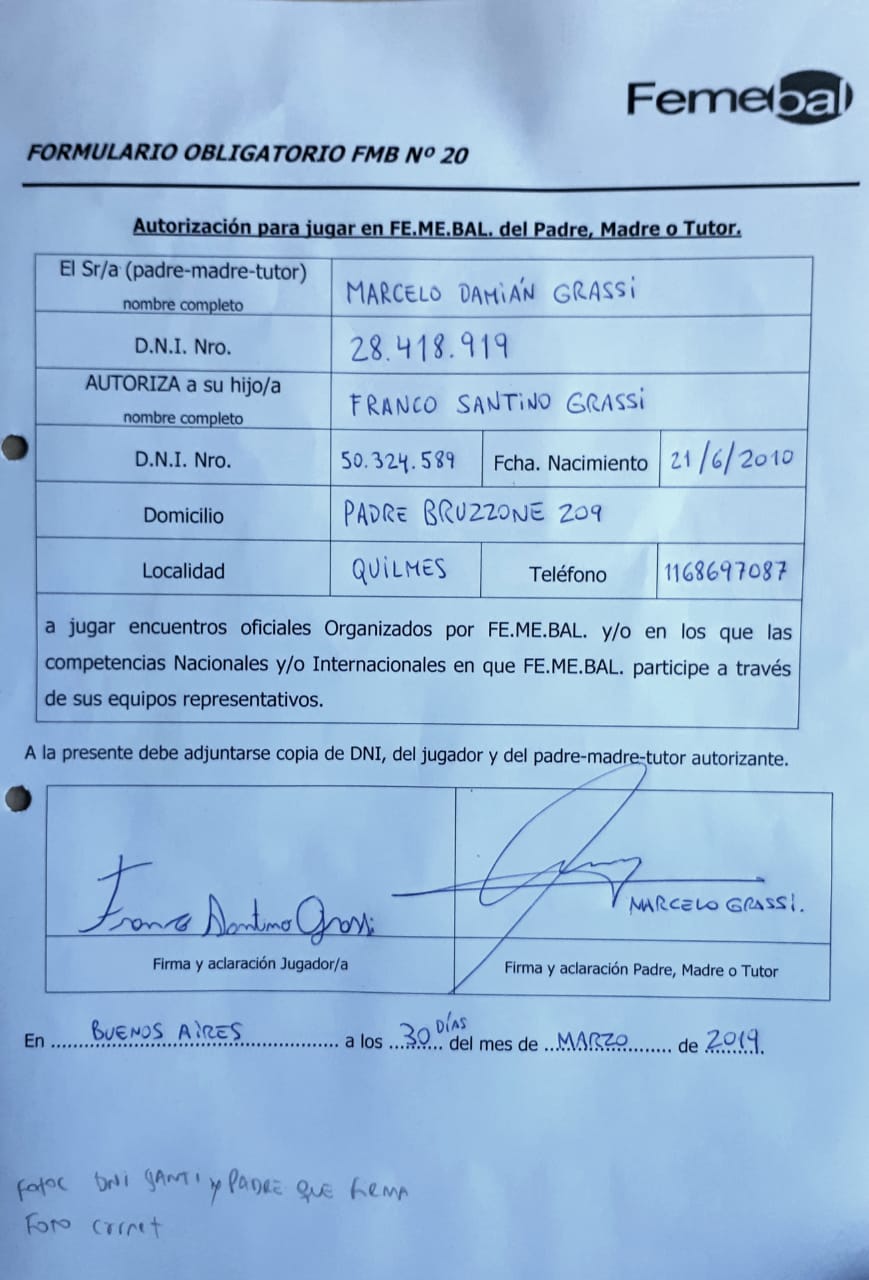 Femebal
FORMULARIO OBLIGATORIO FMB Nº 20
Autorización para jugar en FE.ME.BAL. del Padre, Madre o Tutor.
El Sr/a (padre-madre-tutor)
nombre completo
MARCELO DAMIÁN GRASSI
D.N.I. Nro.
28.418.919
AUTORIZA a su hijo/a
nombre completo
FRANCO SANTINO GRASSI
D.N.I. Nro.
50.324.589
Fcha. Nacimiento
21/6/2010
Domicilio
PADRE BRUZZONE 209
Localidad
QUILMES
Teléfono
1168697087
a jugar encuentros oficiales Organizados por FE.ME.BAL. y/o en los que las
competencias Nacionales y/o Internacionales en que FE.ME.BAL. participe a través
de sus equipos representativos.
A la presente debe adjuntarse copia de DNI, del jugador y del padre-madre-tutor autorizante.
Franco Santino Grassi
MARCELO GRASSI.
Firma y aclaración Jugador/a
Firma y aclaración Padre, Madre o Tutor
En BUENOS AIRES a los 30 DÍAS del mes de MARZO de 2019.
Fotoc DNI SANTI y PADRE QUE FIRMA
Foto carnet